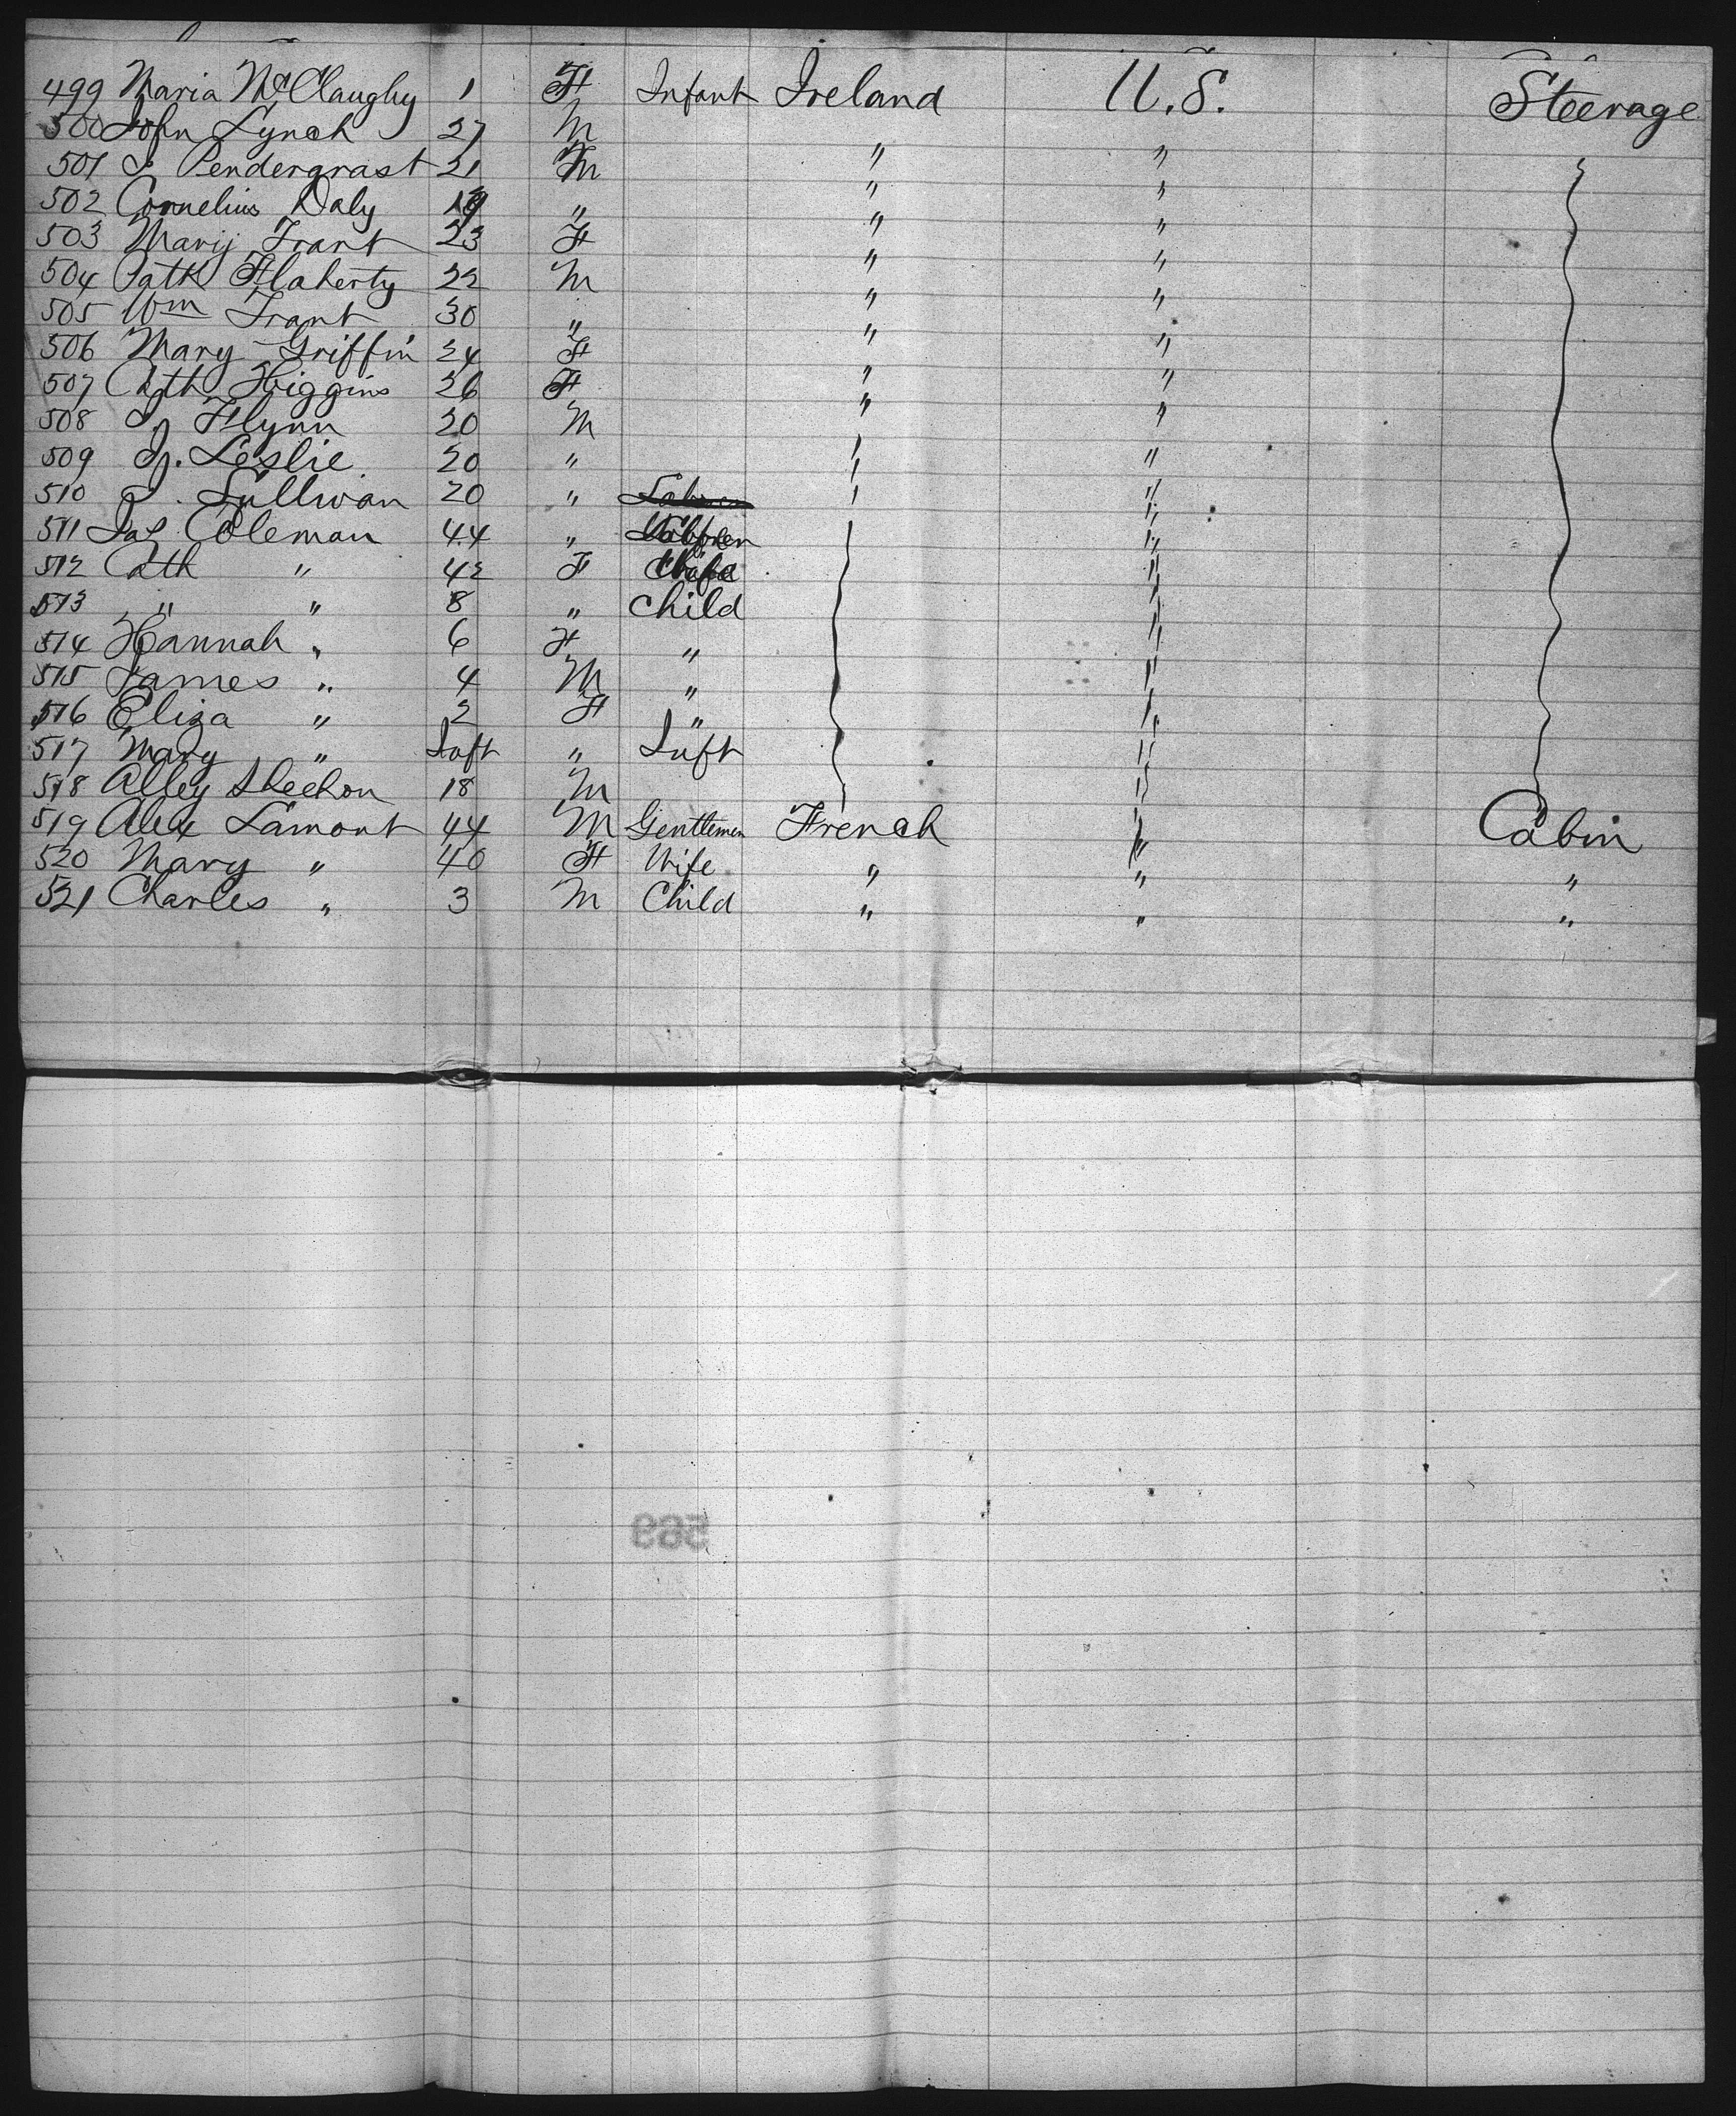 499 Maria McClaughy 1 F Infant Ireland U.S. Steerage
500 John Lynch 27 M " "
501 Pendergrast 21 M " "
502 Cornelius Daly 19 " " "
503 Mary Trant 23 F " "
504 Patk Flaherty 22 M " "
505 Wm Trant 30 " " "
506 Mary Griffin 24 F " "
507 Cath Higgins 26 F " "
508 Flynn 20 M "
509 Leslie 20 " "
510 Sullivan 20 " "
511 Jas Coleman 44 " "
512 Cath " 42 F "
513 " " 8 " Child "
514 Hannah " 6 F " "
515 James " 4 M " "
516 Eliza " 2 F " "
517 Mary " Inft " Inft "
518 Alley Sheehon 18 M "
519 Alex Lamont 44 M Gentlemen French " Cabin
520 Mary " 40 F Wife " " "
521 Charles " 3 M Child " " "
569